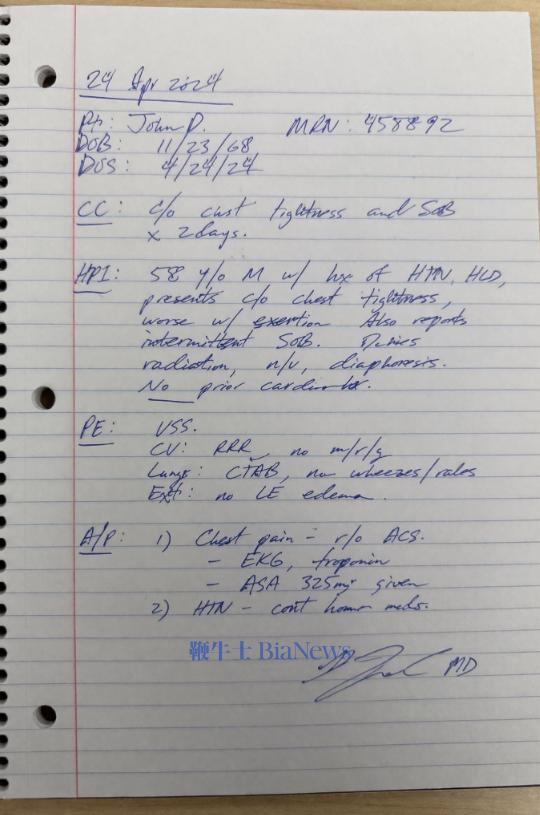 24 Apr 2024
Pt: John D. MRN: 458892
DOB: 11/23/68
DOS: 4/24/24
CC: c/o chest tightness and SOB
x 2 days.
HPI: 58 y/o M w/ hx of HTN, HLD,
presents c/o chest tightness,
worse w/ exertion Also reports
intermittent SOB. Denies
radiation, n/v, diaphoresis.
No prior cardiac hx.
PE: VSS.
CV: RRR, no m/r/g
Lungs: CTAB, no wheezes/rales
Ext: no LE edema.
A/P: 1) Chest pain - r/o ACS.
- EKG, troponin
- ASA 325mg given
2) HTN - cont home meds.
鞭牛士 BiaNews
MD